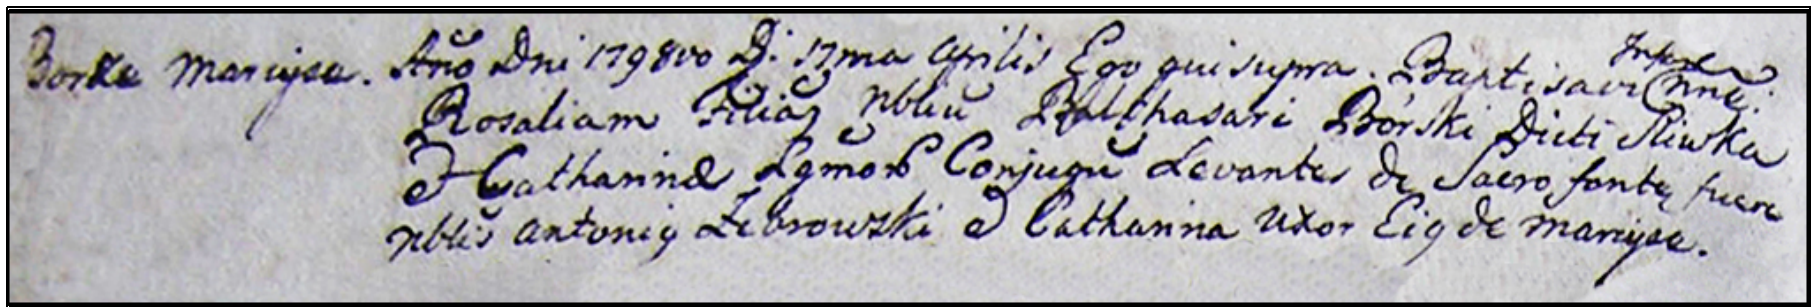 Borke Maryse. Año Dni 1798vo D. 17ma Aprilis Ego qui supra. Baptisavi Infan Nnē:
Rosaliam Filiaz Nbliū Balthasari Borski Dicti Sliwka
& Catharinæ Lgmorb Conjugū Levantes de Sacro fonte fuere
Nblis Antonig Zebrowski & Catharina Uxor Eig de Maryse.